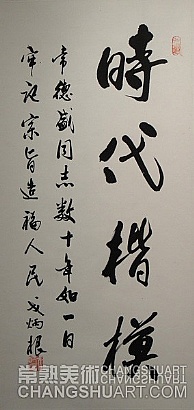 時代楷模
常德盛同志数十年如一日
牢记宗旨造福人民 戈炳根
常熟美術
CHANGSHUART